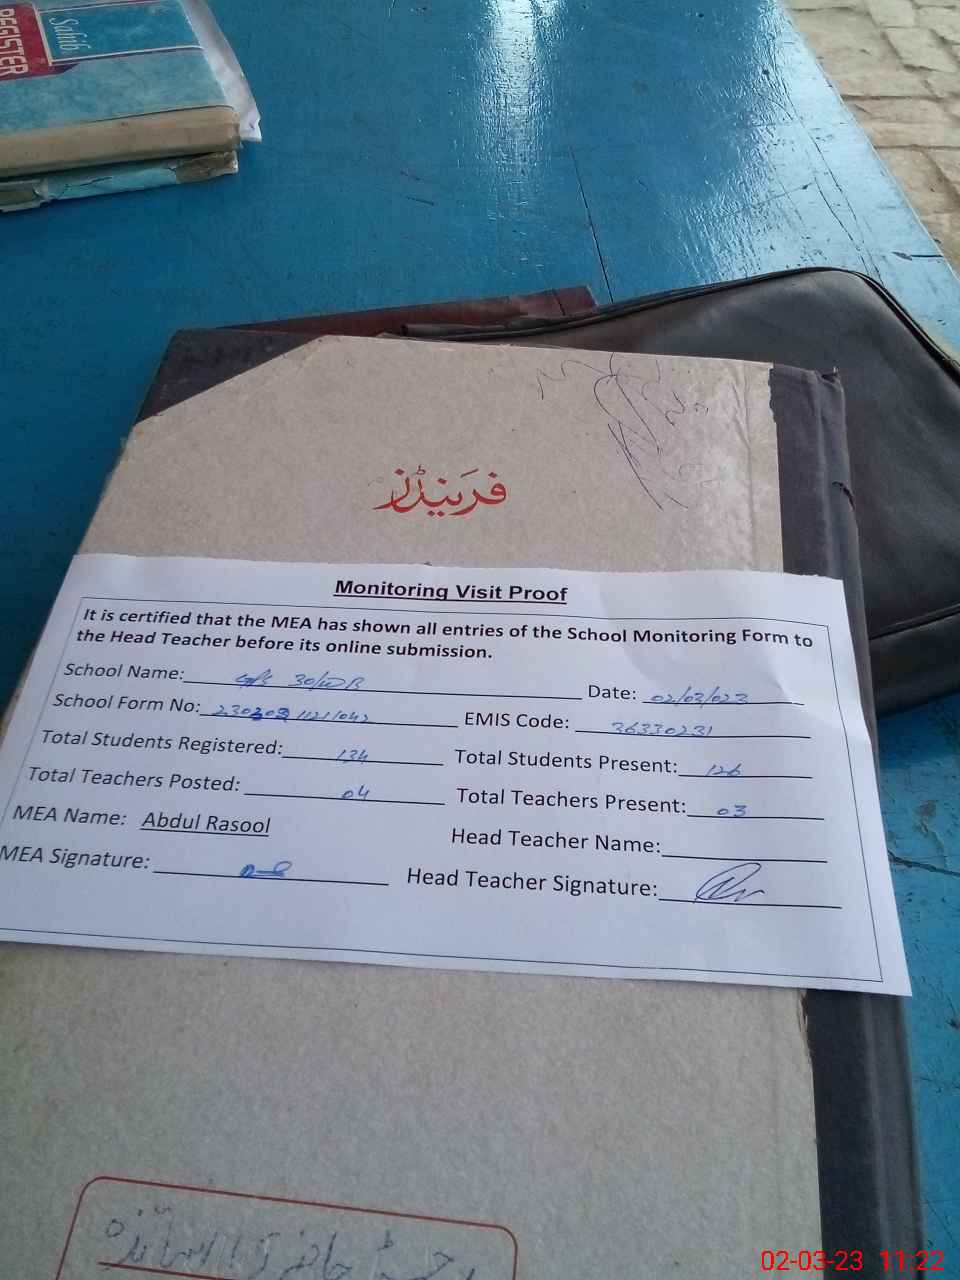 Sahib
REGISTER
فرینڈز
Monitoring Visit Proof
It is certified that the MEA has shown all entries of the School Monitoring Form to
the Head Teacher before its online submission.
School Name: 30/WB Date: 02/03/023
School Form No: EMIS Code: 36330231
Total Students Registered: 134 Total Students Present: 126
Total Teachers Posted: 04 Total Teachers Present: 03
MEA Name: Abdul Rasool Head Teacher Name:
MEA Signature: Head Teacher Signature:
رجسٹر حاضری اساتذہ
02-03-23 11:22